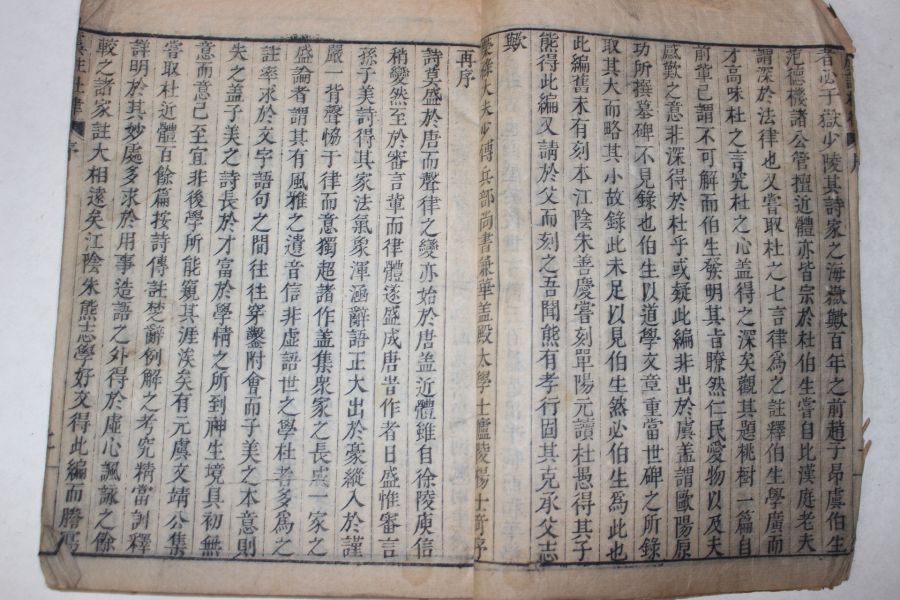 者必于嶽少陵其詩家之海嶽歟百年之前趙子昂虞伯生
范德機諸公管擅近體亦皆宗於杜伯生嘗自比漢庭老夫
謂深於法律也又嘗取杜之七言律為之註釋伯生學廣而
才高味杜之言究杜之心盖得之深矣觀其題桃樹一篇自
前軰已謂不可解而伯生發明其旨瞭然仁民愛物以及夫
感歎之意非深得於杜乎或疑此編非出於虞盖謂歐陽原
功所撰墓碑不見錄也伯生以道學文章重當世碑之所錄
取其大而略其小故錄此未足以見伯生然必伯生為此也
此編舊未有刻本江陰朱善慶嘗刻單陽元讀杜愚得其子
熊得此編又請於父而刻之吾聞熊有孝行固其克承父志
歟
榮祿大夫少傅兵部尚書兼華盖殿大學士廬陵楊士奇序
再序
詩莫盛於唐而聲律之變亦始於唐盖近體雖自徐陵庾信
稍變然至於審言軰而律體遂盛成唐昔作者日盛惟審言
孫子美詩得其家法氣象渾涵辭語正大出於豪縱入於謹
嚴一揹聲恊于律而意獨超諸作盖集衆家之長成一家之
盛論者謂其有風雅之遺音信非虚語世之學杜者多為之
註率求於文字語句之間往往穿鑿附會而子美之本意則
失之盖子美之詩長於才富於學情之所到神生境具初無
意而意已至宜非後學所能窺其涯涘矣有元虞文靖公集
嘗取杜近體百餘篇按詩傳註楚辭例解之考究精當訓釋
詳明於其妙處多求於用事造語之外得於虛心諷詠之餘
較之諸家註大相遠矣江隂朱熊志學好文得此編而謄寫
虞註杜律
序